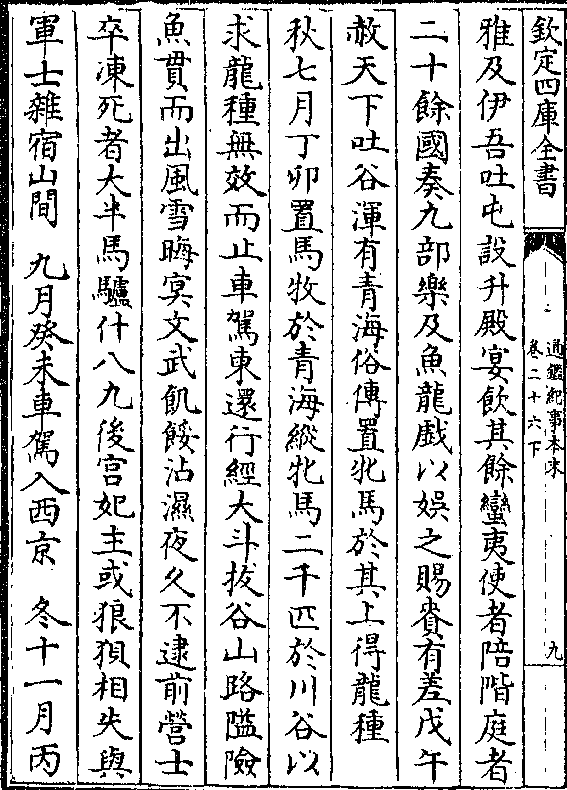 欽定四庫全書
通鑑紀事本末
卷二十六下
九
雅及伊吾吐屯設升殿宴飲其餘蠻夷使者陪階庭者
二十餘國奏九部樂及魚龍戲以娛之賜賚有差戊午
赦天下吐谷渾有青海俗傳置牝馬於其上得龍種
秋七月丁卯置馬牧於青海縱牝馬二千匹於川谷以
求龍種無效而止車駕東還行經大斗拔谷山路隘險
魚貫而出風雪晦冥文武飢餒沾濕夜久不逮前營士
卒凍死者大半馬驢什八九後宫妃主或狼狽相失與
軍士雜宿山間 九月癸未車駕入西京 冬十一月丙